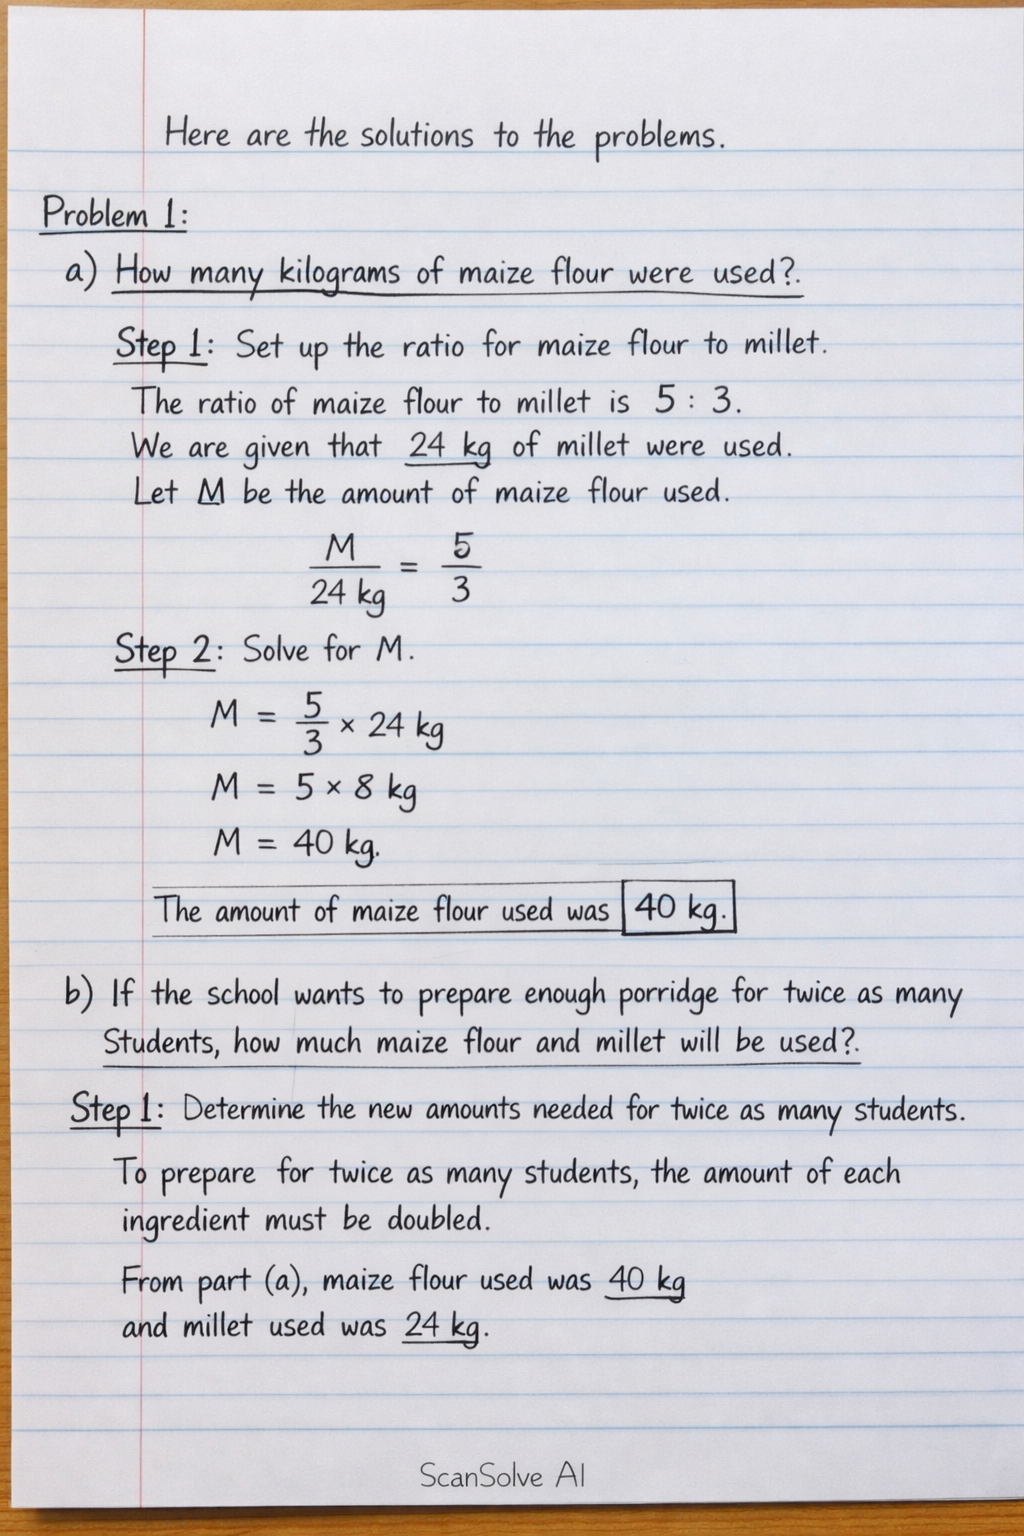 Here are the solutions to the problems.
Problem 1:
a) How many kilograms of maize flour were used?.
Step 1: Set up the ratio for maize flour to millet.
The ratio of maize flour to millet is 5 : 3.
We are given that 24 kg of millet were used.
Let M be the amount of maize flour used.
M/24 kg = 5/3
Step 2: Solve for M.
M = 5/3 × 24 kg
M = 5 × 8 kg
M = 40 kg.
The amount of maize flour used was 40 kg.
b) If the school wants to prepare enough porridge for twice as many
Students, how much maize flour and millet will be used?.
Step 1: Determine the new amounts needed for twice as many students.
To prepare for twice as many students, the amount of each
ingredient must be doubled.
From part (a), maize flour used was 40 kg
and millet used was 24 kg.
ScanSolve AI